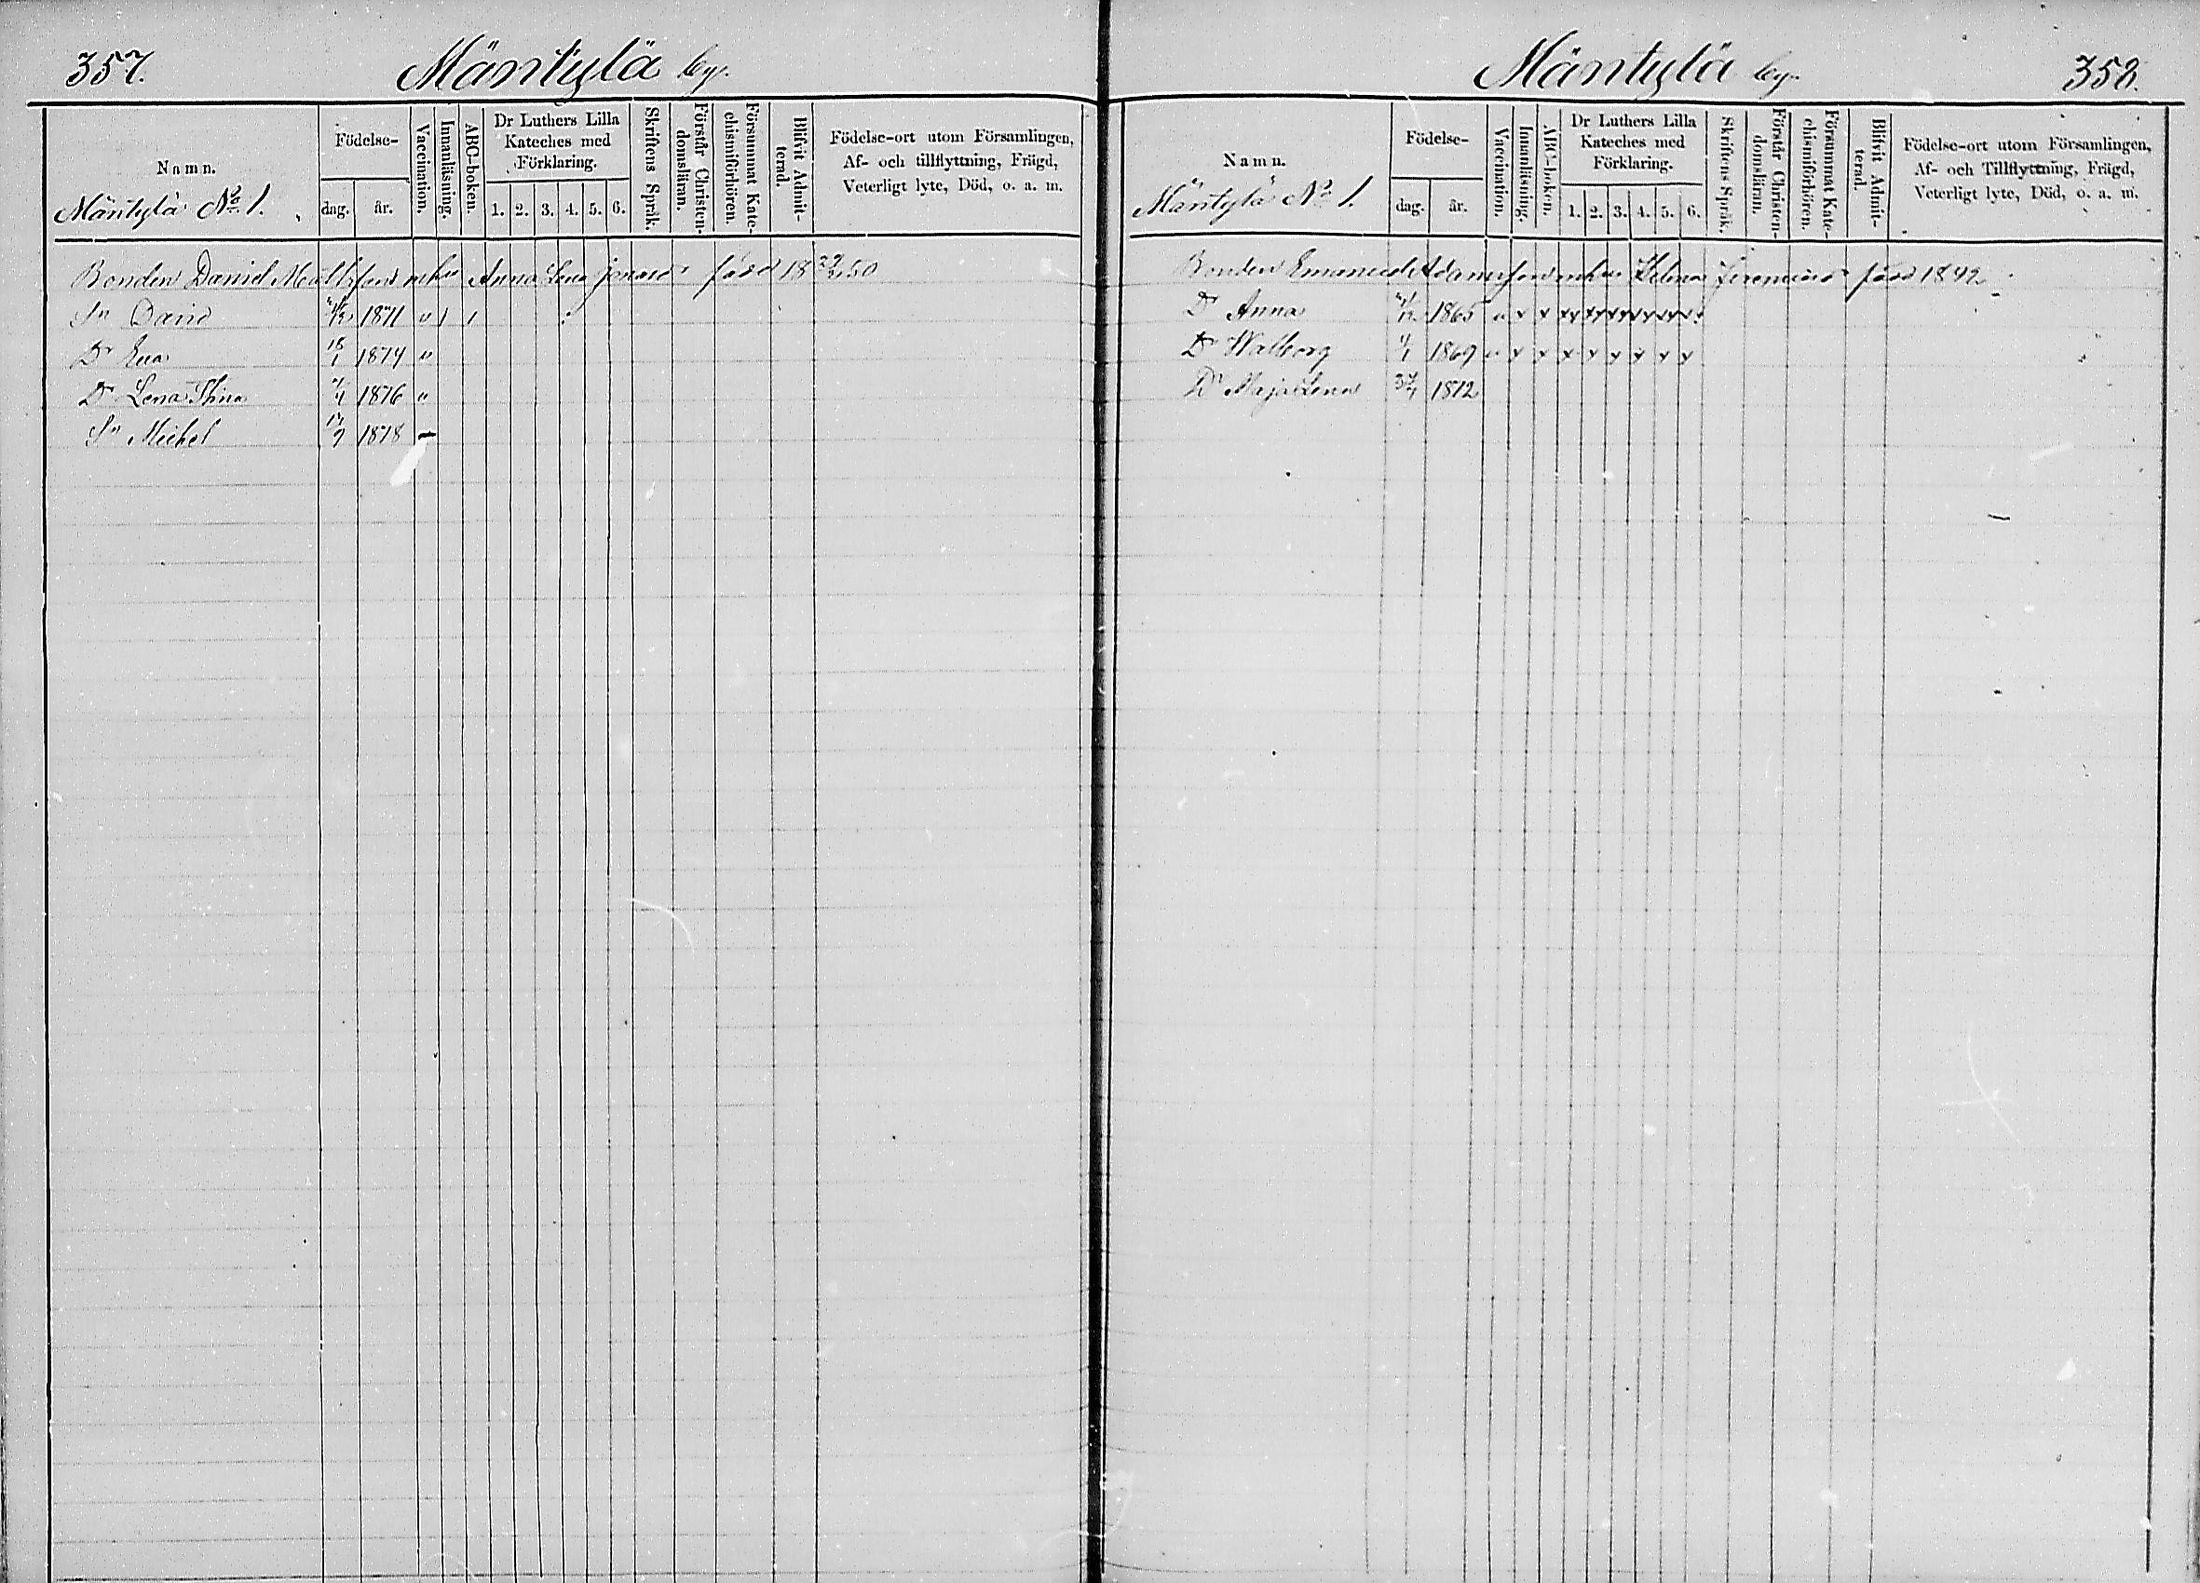 357.
Mäntylä by.
Namn.
Mäntylä No 1.
Födelse-
dag.
år.
Vaccination.
Innanläsning.
ABC-boken.
Dr Luthers Lilla
Kateches med
Förklaring.
1. 2. 3. 4. 5. 6.
Skriftens Språk.
Förstår Christen-
domsläran.
Försummat Kate-
chismiförhören.
Blifvit Admit-
terad.
Födelse-ort utom Församlingen,
Af- och tillflyttning, Frägd,
Veterligt lyte, Död, o. a. m.
Bonden Daniel Anna Lena född 50
Sn David 1871 " 1 1
Dr Eva 18/1 1874 "
Dr Lena Stina 1876 "
Sn Michel 1878 —
Mäntylä by.
358.
Namn.
Mäntylä No 1.
Födelse-
dag.
år.
Vaccination.
Innanläsning.
ABC-boken.
Dr Luthers Lilla
Kateches med
Förklaring.
1. 2. 3. 4. 5. 6.
Skriftens Språk.
Förstår Christen-
domsläran.
Försummat Kate-
chismiförhören.
Blifvit Admit-
terad.
Födelse-ort utom Församlingen,
Af- och Tillflyttning, Frägd,
Veterligt lyte, Död, o. a. m.
Bonden Emanuel Adamsson Jeremias född 1842
Dr Anna 1865 " x x xx xx xx xx xx x
Dr Walborg 1/1 1869 " x x x x x x x x
Dr Maja Lena 1872